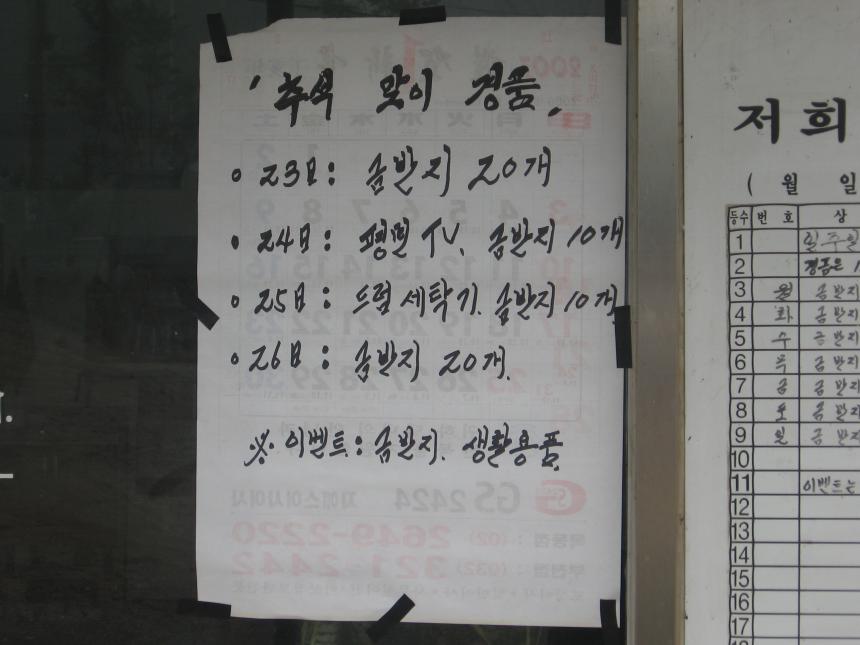 ' 추석 맞이 경품 ,
• 23日: 금반지 20개
• 24日: 평면TV. 금반지 10개
• 25日: 드럼세탁기. 금반지 10개
• 26日: 금반지 20개.
※. 이벤트: 금반지. 생활용품
2007
GS 2424 지에스이사이사
목동점 : (02) 2649-2220
부천점 : (032) 321-2442
저희
( 월 일
등수 번 호 상
1
2 경품은
3 월 금반지
4 화 금반지
5 수 금반지
6 목 금반지
7 금 금반지
8 토 금반지
9 일 금반지
10
11 이벤트는
12
13
14
15
16
17